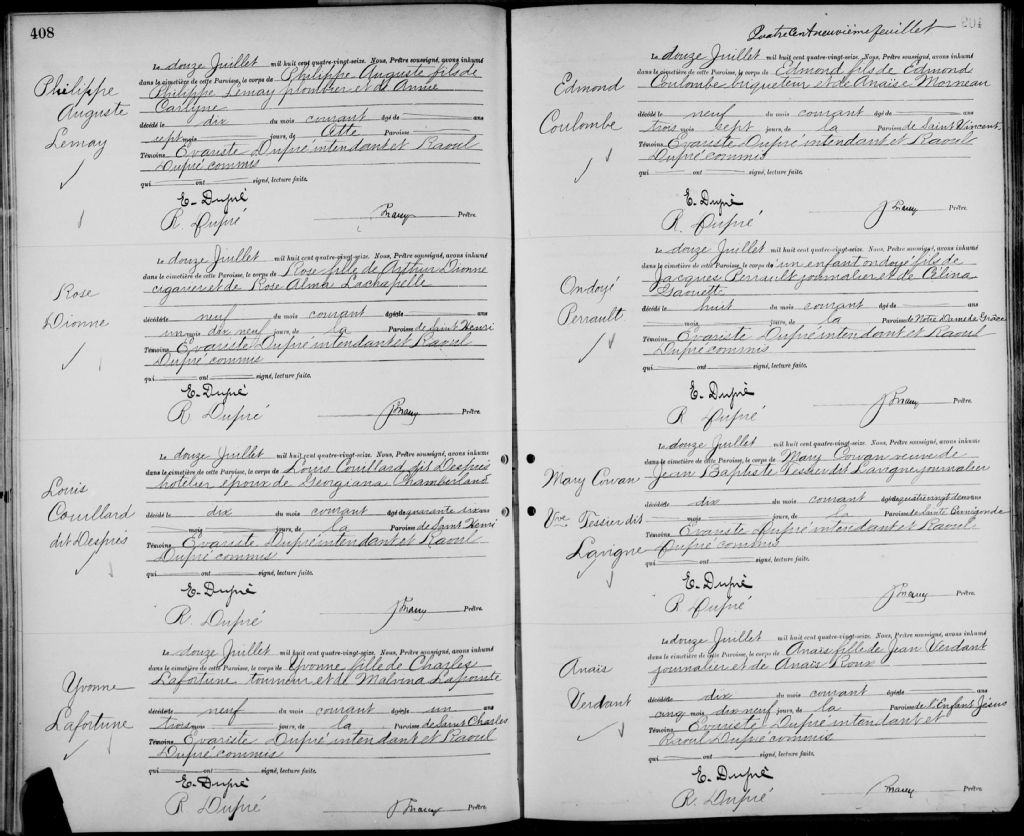 408
Philippe
Auguste
Lemay
Le douze Juillet mil huit cent quatre-vingt-seize. Nous, Prêtre soussigné, avons inhumé
dans le cimetière de cette Paroisse, le corps de Philippe Auguste fils de
Philippe Lemay plombier et de Annie
Carlyne
décédé le dix du mois courant âgé de ans
sept mois jours, de Paroisse
Témoins Evariste Dupré intendant et Raoul
Dupré commis
qui ont signé, lecture faite.
E. Dupré
R. Dupré
Prêtre.
Rose
Dionne
Le douze Juillet mil huit cent quatre-vingt-seize. Nous, Prêtre soussigné, avons inhumé
dans le cimetière de cette Paroisse, le corps de Rose fille de Arthur Dionne
cigarier et de Rose Alma Lachapelle
décédé le neuf du mois courant âgé de ans
un mois dix neuf jours, de la Paroisse de Saint Henri
Témoins Evariste Dupré intendant et Raoul
Dupré commis
qui ont signé, lecture faite.
E. Dupré
R. Dupré
Prêtre.
Louis
Couillard
dit Despres
Le douze Juillet mil huit cent quatre-vingt-seize. Nous, Prêtre soussigné, avons inhumé
dans le cimetière de cette Paroisse, le corps de Louis Couillard dit Despres
hotelier époux de Georgiana Chamberland
décédé le dix du mois courant âgé de quarante six ans
mois jours, de la Paroisse de Saint Henri
Témoins Evariste Dupré intendant et Raoul
Dupré commis
qui ont signé, lecture faite.
E. Dupré
R. Dupré
Prêtre.
Yvonne
Lafortune
Le douze Juillet mil huit cent quatre-vingt-seize. Nous, Prêtre soussigné, avons inhumé
dans le cimetière de cette Paroisse, le corps de Yvonne fille de Charles
Lafortune tourneur et de Malvina Lapointe
décédé le neuf du mois courant âgé de un ans
trois mois jours, de la Paroisse de Saint Charles
Témoins Evariste Dupré intendant et Raoul
Dupré commis
qui ont signé, lecture faite.
E. Dupré
R. Dupré
Prêtre.
Quatre Cent neuvième feuillet
Edmond
Coulombe
Le douze Juillet mil huit cent quatre-vingt-seize. Nous, Prêtre soussigné, avons inhumé
dans le cimetière de cette Paroisse, le corps de Edmond fils de Edmond
Coulombe briqueteur et de Anaïse Morneau
décédé le neuf du mois courant âgé de ans
trois mois sept jours, de la Paroisse de Saint Vincent
Témoins Evariste Dupré intendant et Raoul
Dupré commis
qui ont signé, lecture faite.
E. Dupré
R. Dupré
Prêtre.
Ondoyé
Perrault
Le douze Juillet mil huit cent quatre-vingt-seize. Nous, Prêtre soussigné, avons inhumé
dans le cimetière de cette Paroisse, le corps de un enfant ondoyé fils de
Jacques Perrault journalier et de Célina
Gaouett
décédé le huit du mois courant âgé de ans
mois jours, de la Paroisse de Notre Dame de Grâce
Témoins Evariste Dupré intendant et Raoul
Dupré commis
qui ont signé, lecture faite.
E. Dupré
R. Dupré
Prêtre.
Mary Cowan
Vve Tessier dit
Lavigne
Le douze Juillet mil huit cent quatre-vingt-seize. Nous, Prêtre soussigné, avons inhumé
dans le cimetière de cette Paroisse, le corps de Mary Cowan veuve de
Jean Baptiste Tessier dit Lavigne journalier
décédé le dix du mois courant âgé de quatre vingt deux ans
mois jours, de la Paroisse de Sainte Brunégonde
Témoins Evariste Dupré intendant et Raoul
Dupré commis
qui ont signé, lecture faite.
E. Dupré
R. Dupré
Prêtre.
Anaïs
Verdant
Le douze Juillet mil huit cent quatre-vingt-seize. Nous, Prêtre soussigné, avons inhumé
dans le cimetière de cette Paroisse, le corps de Anaïs fille de Jean Verdant
journalier et de Anaïs Roux
décédé le dix du mois courant âgé de ans
cinq mois dix neuf jours, de la Paroisse de l'Enfant Jésus
Témoins Evariste Dupré intendant et
Raoul Dupré commis
qui ont signé, lecture faite.
E. Dupré
R. Dupré
Prêtre.